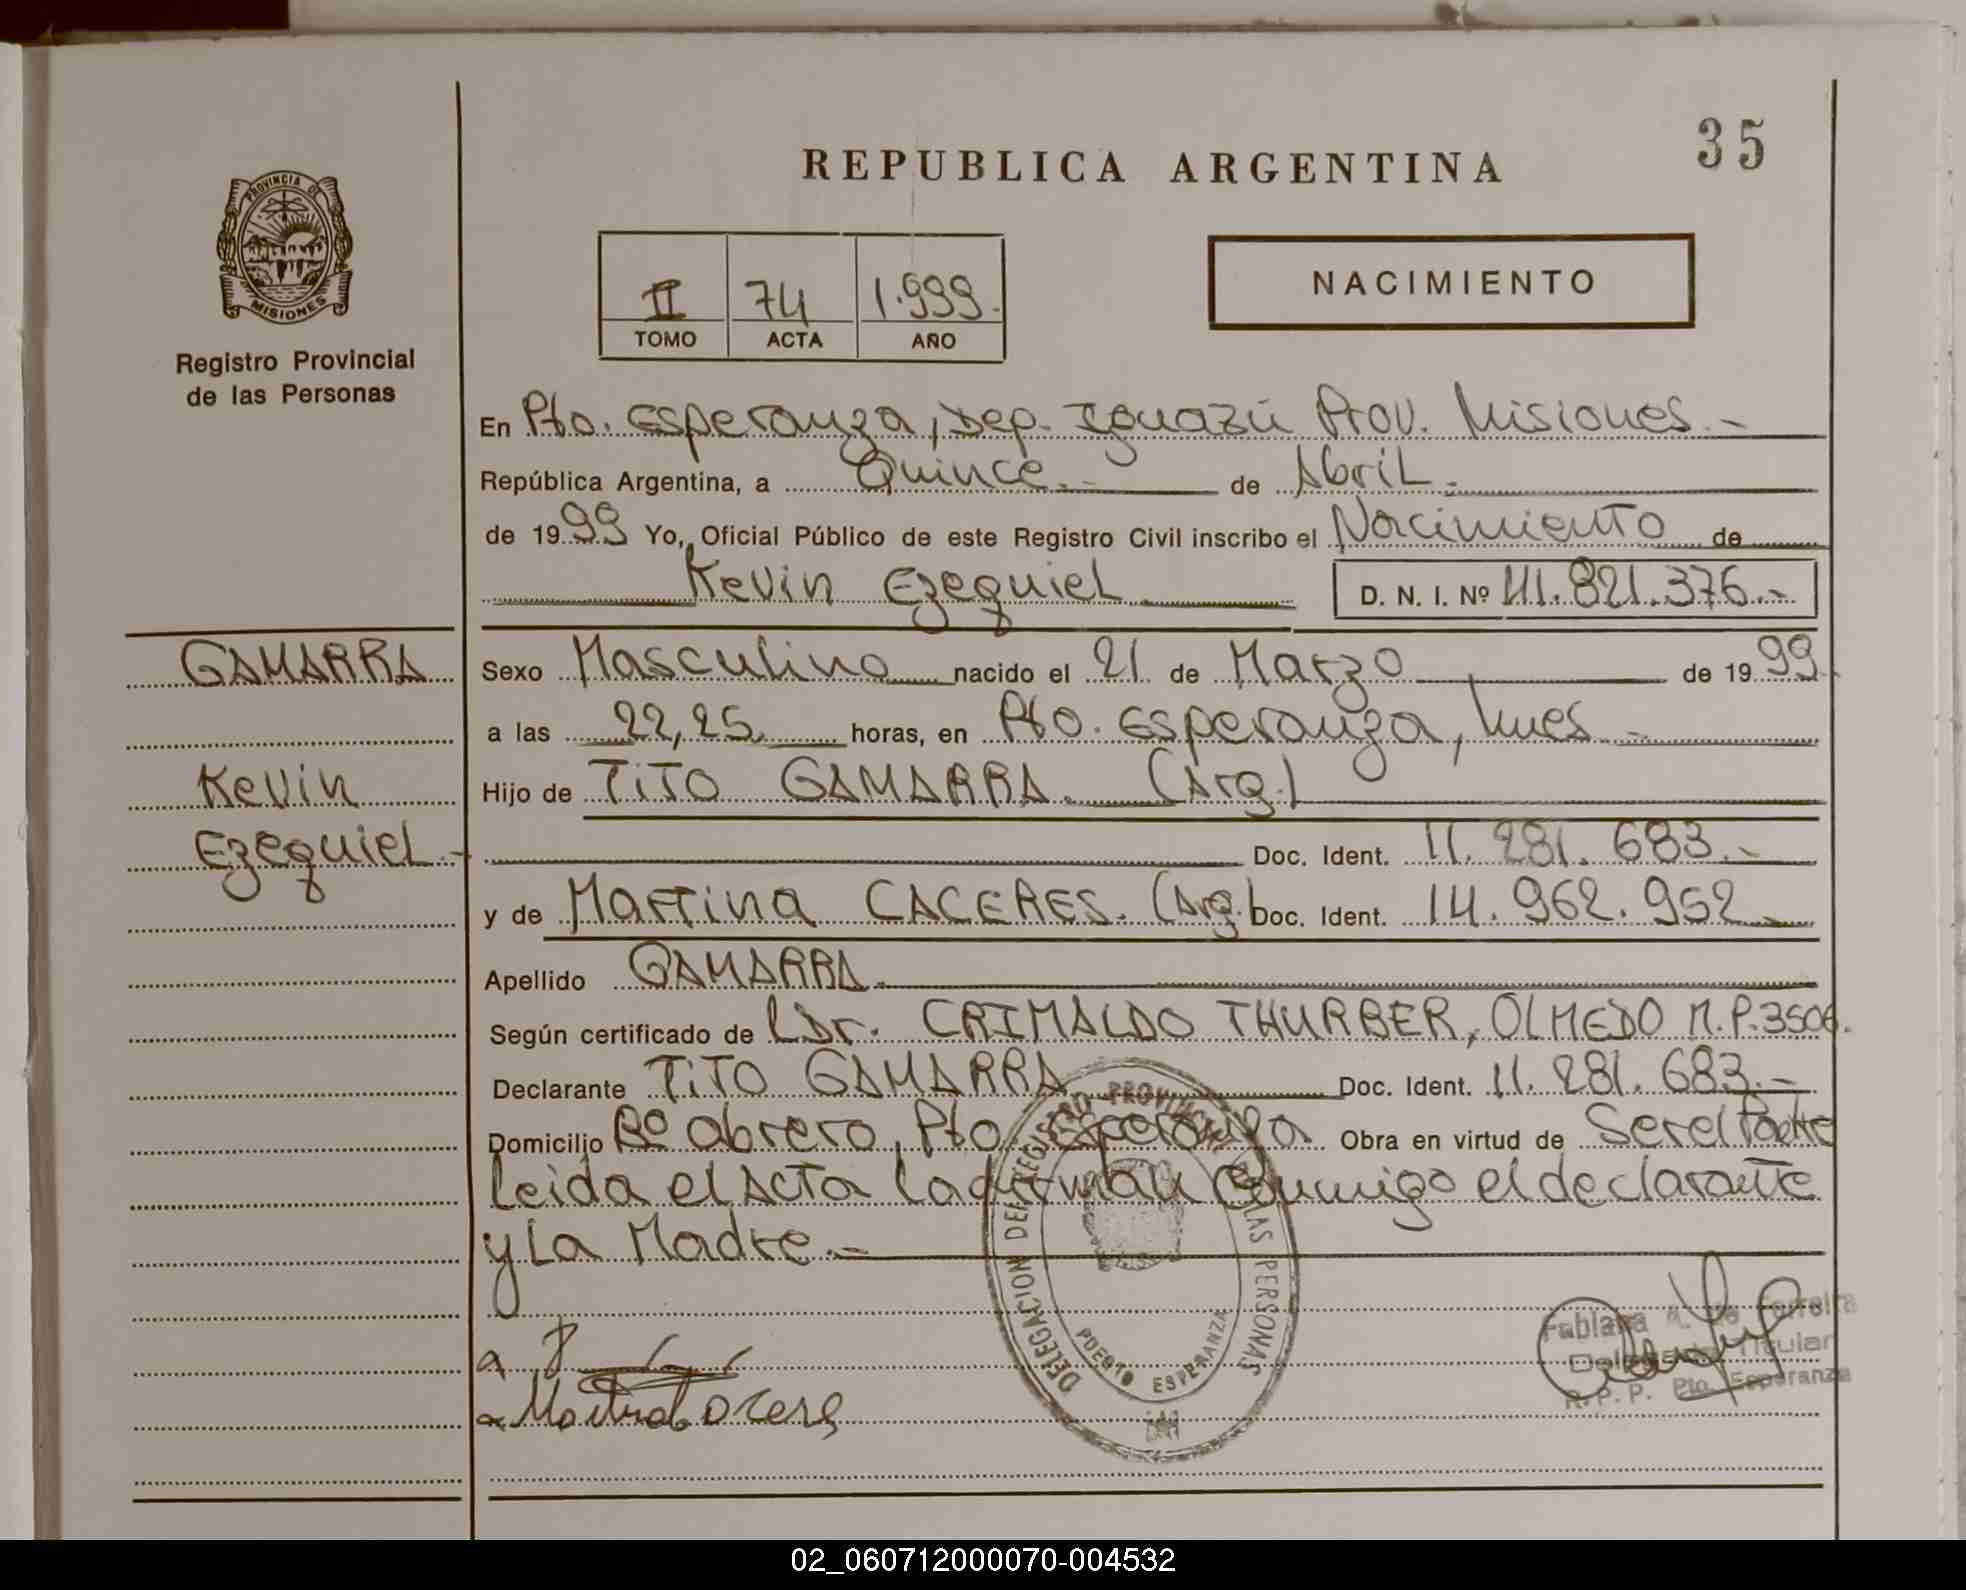 35
REPUBLICA ARGENTINA
PROVINCIA DE
MISIONES
Registro Provincial
de las Personas
II 74 1.999.
TOMO ACTA AÑO
NACIMIENTO
En Pto. Esperanza, Dep. Iguazú Prov. Misiones.-
República Argentina, a Quince.- de Abril.-
de 1999 Yo, Oficial Público de este Registro Civil inscribo el Nacimiento de
Kevin Ezequiel D. N. I. Nº 41.821.376.-
GAMARRA
Kevin
Ezequiel.-
Sexo Masculino nacido el 21 de Marzo de 1999.
a las 22,25 horas, en Pto. Esperanza, Mnes.-
Hijo de TiTO GAMARRA. (Arg.)
Doc. Ident. 11.281.683.-
y de Martina CACERES. (Arg.) Doc. Ident. 14.962.952.-
Apellido GAMARRA.
Según certificado de Dr. CRIMALDO THURBER, OLMEDO M.P.3506.
Declarante TiTO GAMARRA Doc. Ident. 11.281.683.-
Domicilio Bº Obrero, Pto. Esperanza Obra en virtud de Ser el Padre
Leida el Acta la firman conmigo el declarante
y La Madre.-
DELEGACION DEL REGISTRO PROVINCIAL DE LAS PERSONAS
PUERTO ESPERANZA
Fabiana de Ferreira
Delegada Titular
R.P.P. Pto. Esperanza
02_060712000070-004532